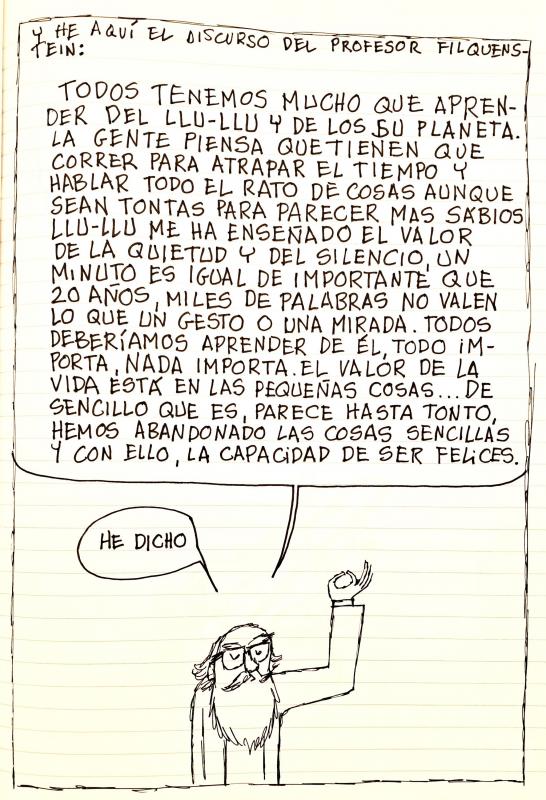 Y HE AQUÍ EL DISCURSO DEL PROFESOR FILQUENS-
TEIN:
TODOS TENEMOS MUCHO QUE APREN-
DER DEL LLU-LLU Y DE LOS SU PLANETA.
LA GENTE PIENSA QUE TIENEN QUE
CORRER PARA ATRAPAR EL TIEMPO Y
HABLAR TODO EL RATO DE COSAS AUNQUE
SEAN TONTAS PARA PARECER MAS SABIOS
LLU-LLU ME HA ENSEÑADO EL VALOR
DE LA QUIETUD Y DEL SILENCIO, UN
MINUTO ES IGUAL DE IMPORTANTE QUE
20 AÑOS, MILES DE PALABRAS NO VALEN
LO QUE UN GESTO O UNA MIRADA. TODOS
DEBERÍAMOS APRENDER DE ÉL, TODO IM-
PORTA, NADA IMPORTA. EL VALOR DE LA
VIDA ESTÁ EN LAS PEQUEÑAS COSAS... DE
SENCILLO QUE ES, PARECE HASTA TONTO,
HEMOS ABANDONADO LAS COSAS SENCILLAS
Y CON ELLO, LA CAPACIDAD DE SER FELICES.
HE DICHO